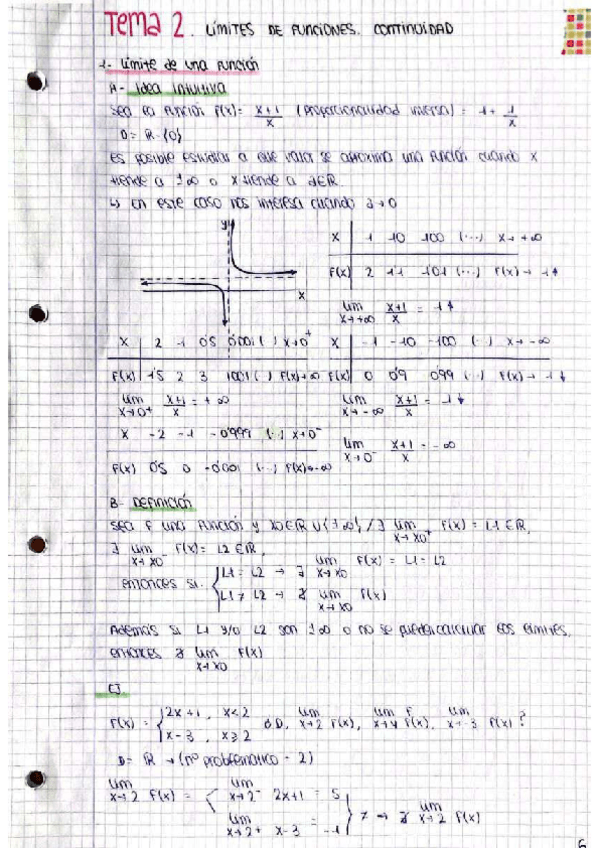 Tema 2. LÍMITES DE FUNCIONES. CONTINUIDAD
1- Límite de una función
A- Idea intuitiva
Sea la función f(x) = (x+1)/x (proporcionalidad inversa) = 1 + 1/x
D = R - {0}
Es posible estudiar a que valor se aproxima una función cuando x
tiende a ±∞ o x tiende a a∈R
↳ En este caso nos interesa cuando a→0
y
x
x | 1 10 100 (...) x→+∞
f(x) | 2 1'1 1'01 (...) f(x)→ 1+
lim x→+∞ (x+1)/x = 1+
x | 2 1 0'5 0'001 (..) x→0+
f(x) | 1'5 2 3 1001 (..) f(x)→∞
x | -1 -10 -100 (..) x→-∞
f(x) | 0 0'9 0'99 (..) f(x)→ 1
lim x→0+ (x+1)/x = +∞
lim x→-∞ (x+1)/x = 1
x -2 -1 -0'999 (..) x→0-
f(x) 0'5 0 -0'001 (..) f(x)→-∞
lim x→0- (x+1)/x = -∞
B- Definición
Sea f una función y x0∈R ∪{±∞} / ∃ lim x→x0+ f(x) = L1∈R,
∃ lim x→x0- f(x) = L2∈R,
entonces si: { L1 = L2 → ∃ lim x→x0 f(x) = L1 = L2
L1 ≠ L2 → ∄ lim x→x0 f(x)
Además si L1 y/o L2 son ±∞ o no se pueden calcular esos límites,
entonces ∄ lim x→x0 f(x)
EJ.
f(x) = { 2x+1, x<2
x-3, x≥2
¿D, lim x→2 f(x), lim x→4 f(x), lim x→-3 f(x)?
D = R → (nº problemático = 2)
lim x→2 f(x) = < lim x→2- 2x+1 = 5
lim x→2+ x-3 = -1 } ≠ → ∄ lim x→2 f(x)
6